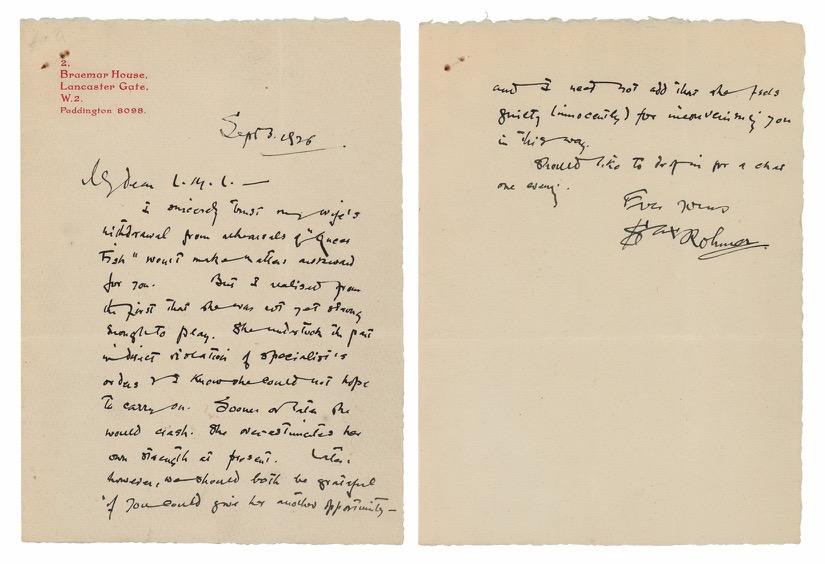 2,
Braemar House,
Lancaster Gate,
W.2.
Paddington 8098.
Sept 3. 1926
My dear L. M. L. —
I sincerely trust my wife's
withdrawal from rehearsals of "Queer
Fish" won't make matters awkward
for you. But I realised from
the first that she was not yet strong
enough to play. She undertook the part
in direct violation of specialist's
orders & I know she could not hope
to carry on. Sooner or later she
would crash. She over-estimates her
own strength at present. Later,
however, we should both be grateful
if you could give her another opportunity —
and I need not add that she feels
guilty (innocently) for inconveniencing you
in this way.
Should like to drop in for a chat
one evening.
Ever yours
Sax Rohmer